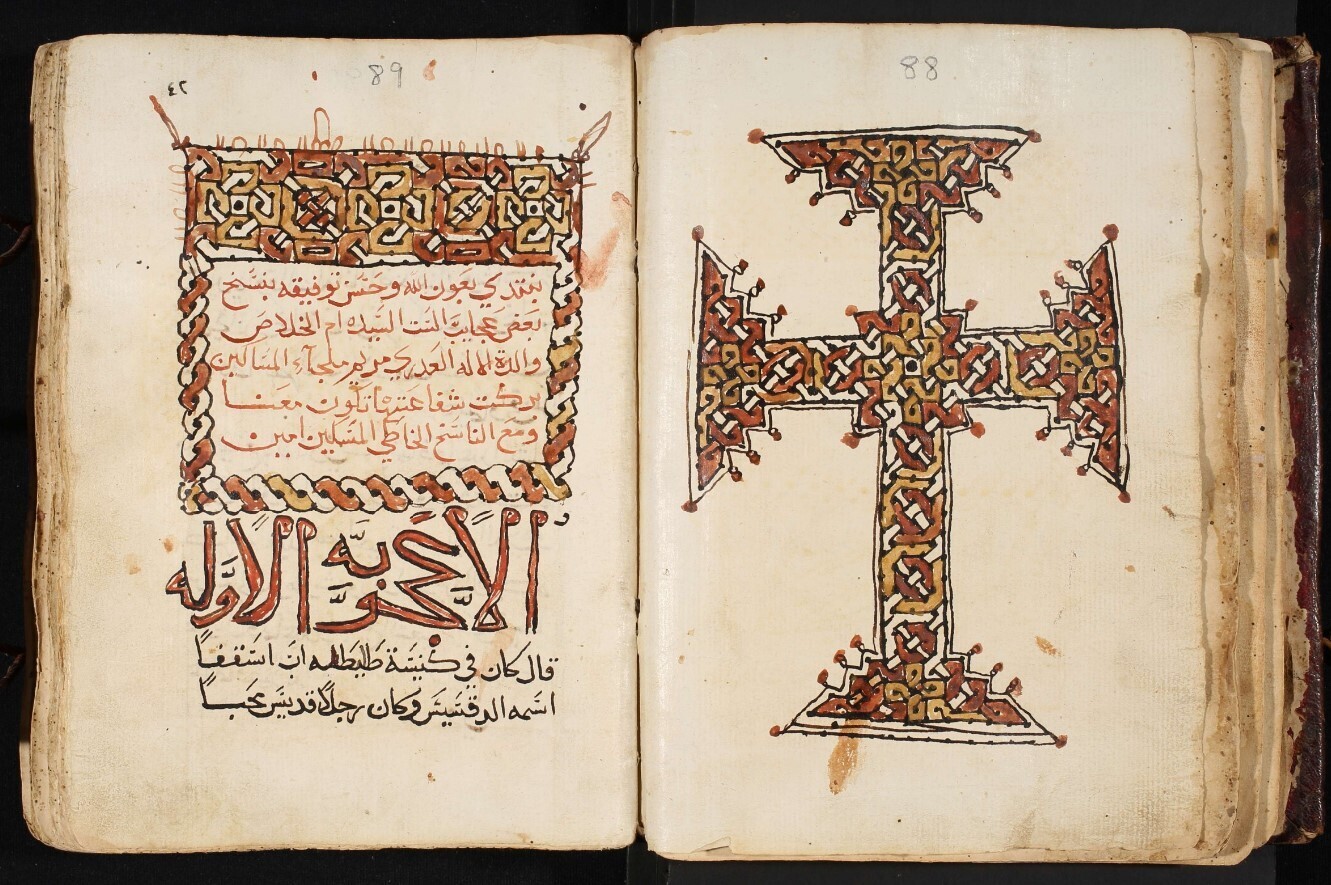 88
89
٤٢
نبتدي بعون الله وحسن توفيقه بنسخ
بعض عجايب الست السيده ام الخلاص
والدة الاله العدري مريم ملجاء المساكين
بركت شفاعتها تكون معنا
ومع الناسخ الخاطي المسكين امين
الاعجوبه الاوله
قال كان في كنيسة طليطله ان اسقفاً
اسمه الدقسيس وكان رجلاً قديس محباً